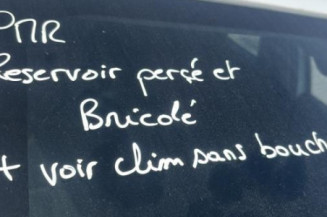 PMR
Reservoir perçé et
Bricolé
+ voir clim sans bouch